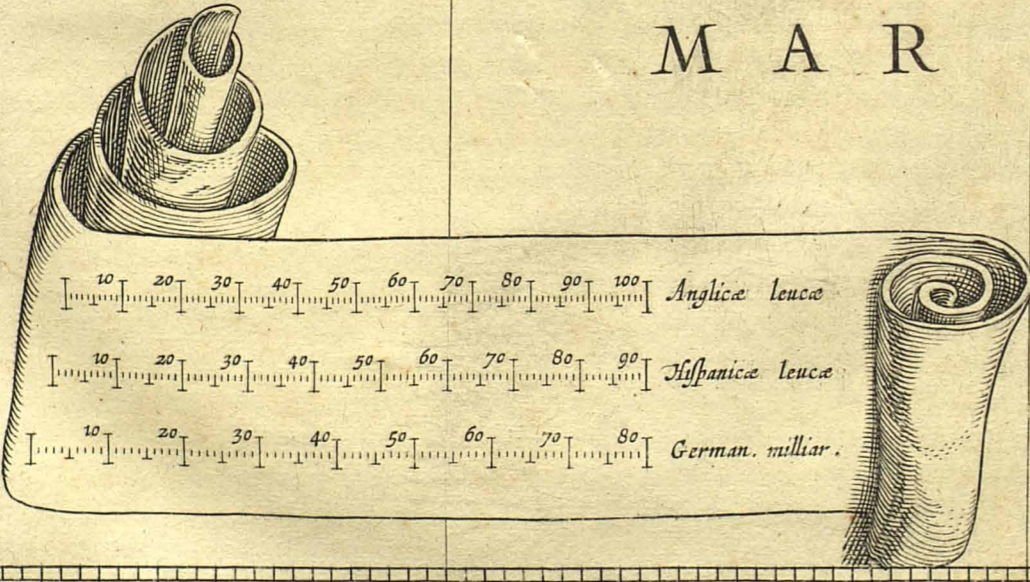 MAR
10 20 30 40 50 60 70 80 90 100 Anglicæ leucæ
10 20 30 40 50 60 70 80 90 Hiſpanicæ leucæ
10 20 30 40 50 60 70 80 German. milliar.